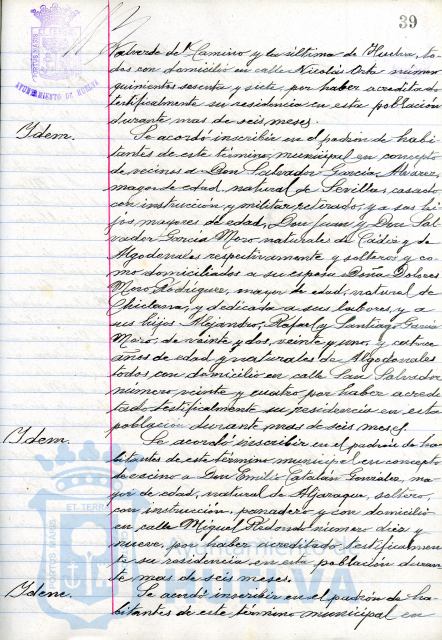 39
PORTUS MARIS
AYUNTAMIENTO DE HUELVA
Valverde del Camino y la última de Huelva, to-
dos con domicilio en calle Nicolás Orta número
quinientos sesenta y siete, por haber acreditado
testificalmente su residencia en esta población
durante mas de seis meses.
Idem.
Se acordó inscribir en el padrón de habi-
tantes de este término municipal en concepto
de vecinos a Don Salvador García Alvarez,
mayor de edad, natural de Sevilla, casado
con instrucción y militar retirado; y a sus hi-
jos mayores de edad, Don Juan y Don Sal-
vador García Moro naturales de Cádiz y de
Algodonales respectivamente y solteros y co-
mo domiciliados a su esposa Doña Dolores
Moro Rodríguez, mayor de edad, natural de
Chiclana, y dedicada a sus labores, y a
sus hijos Alejandro, Rafael y Santiago García
Moro, de veinte y dos, veinte y uno, y catorce
años de edad y naturales de Algodonales
todos con domicilio en calle San Salvador
número veinte y cuatro por haber acredi-
tado testificalmente su residencia en esta
población durante mas de seis meses.
Idem.
Se acordó inscribir en el padrón de ha-
bitantes de este término municipal en concepto
de vecino a Don Emilio Catalán González, ma-
yor de edad, natural de Aljaraque, soltero,
con instrucción, panadero y con domicilio
en calle Miguel Redondo número diez y
nueve, por haber acreditado testificalmen-
te su residencia en esta población duran-
te mas de seis meses.
Idem.
Se acordó inscribir en el padrón de ha-
bitantes de este término municipal en
Ayuntamiento de
HUELVA